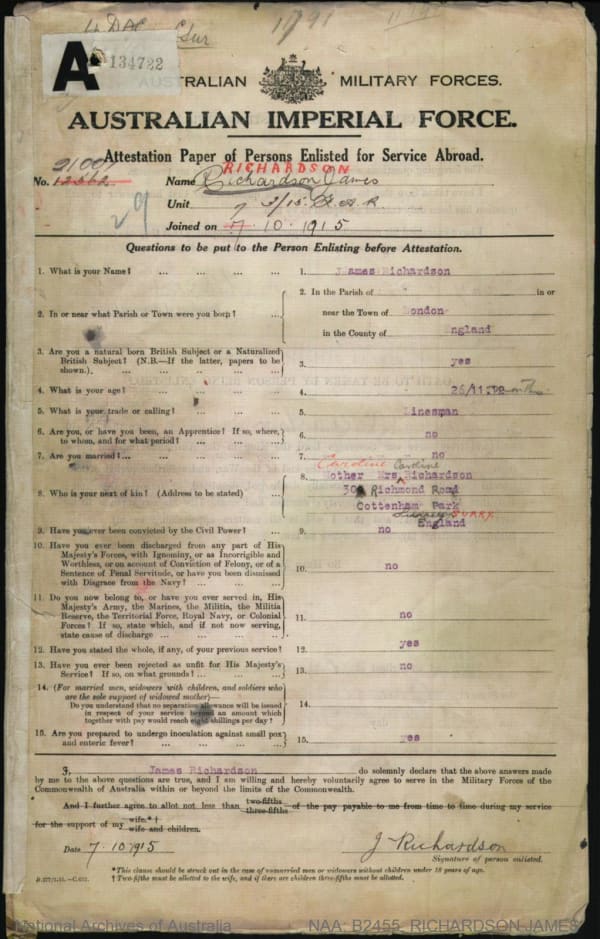 4 DAC
A
134722
AUSTRALIAN MILITARY FORCES.
AUSTRALIAN IMPERIAL FORCE.
Attestation Paper of Persons Enlisted for Service Abroad.
RICHARDSON
No. 12562 Name Richardson James
29
Unit
Joined on 7.10.1915
Questions to be put to the Person Enlisting before Attestation.
1. What is your Name? ... ... ... ... 1. James Richardson
2. In or near what Parish or Town were you born? ... 2. In the Parish of in or
near the Town of London
in the County of ngland
3. Are you a natural born British Subject or a Naturalized
British Subject? (N.B.—If the latter, papers to be
shown.) ... ... ... ... 3. yes
4. What is your age? ... ... ... ... 4. 26/11
5. What is your trade or calling? ... ... ... 5. Linesman
6. Are you, or have you been, an Apprentice? If so, where,
to whom, and for what period? ... ... ... 6. no
7. Are you married? ... ... ... ... 7. no
Caroline Caroline
8. Who is your next of kin? (Address to be stated) ... 8. Mother Mrs Richardson
30 Richmond Road
Cottenham Park
SURRY
England
9. Have you ever been convicted by the Civil Power? ... 9. no
10. Have you ever been discharged from any part of His
Majesty's Forces, with Ignominy, or as Incorrigible and
Worthless, or on account of Conviction of Felony, or of a
Sentence of Penal Servitude, or have you been dismissed
with Disgrace from the Navy? ... ... ... 10. no
11. Do you now belong to, or have you ever served in, His
Majesty's Army, the Marines, the Militia, the Militia
Reserve, the Territorial Force, Royal Navy, or Colonial
Forces? If so, state which, and if not now serving,
state cause of discharge ... ... ... ... 11. no
12. Have you stated the whole, if any, of your previous service? 12. yes
13. Have you ever been rejected as unfit for His Majesty's
Service? If so, on what grounds? ... ... ... 13. no
14. (For married men, widowers with children, and soldiers who
are the sole support of widowed mother)—
Do you understand that no separation allowance will be issued
in respect of your service beyond an amount which
together with pay would reach eight shillings per day? 14.
15. Are you prepared to undergo inoculation against small pox
and enteric fever? ... ... ... ... 15. yes
I, James Richardson do solemnly declare that the above answers made
by me to the above questions are true, and I am willing and hereby voluntarily agree to serve in the Military Forces of the
Commonwealth of Australia within or beyond the limits of the Commonwealth.
And I further agree to allot not less than two-fifths three-fifths of the pay payable to me from time to time during my service
for the support of my wife.*† wife and children.
Date 7.10.1915 J Richardson
Signature of person enlisted.
*This clause should be struck out in the case of unmarried men or widowers without children under 18 years of age.
† Two-fifths must be allotted to the wife, and if there are children three-fifths must be allotted.
National Archives of Australia NAA: B2455, RICHARDSON JAMES